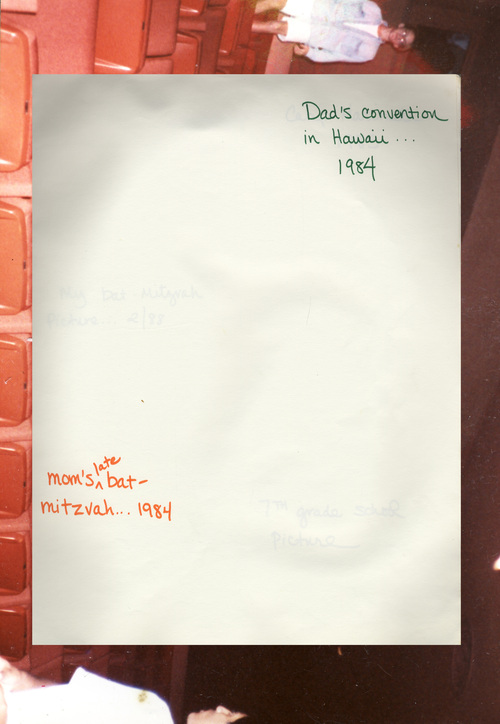 Dad's convention
in Hawaii ...
1984
My bat-Mitzvah
Picture... 2/88
late
mom's ^ bat-
mitzvah... 1984
7TH grade school
Picture